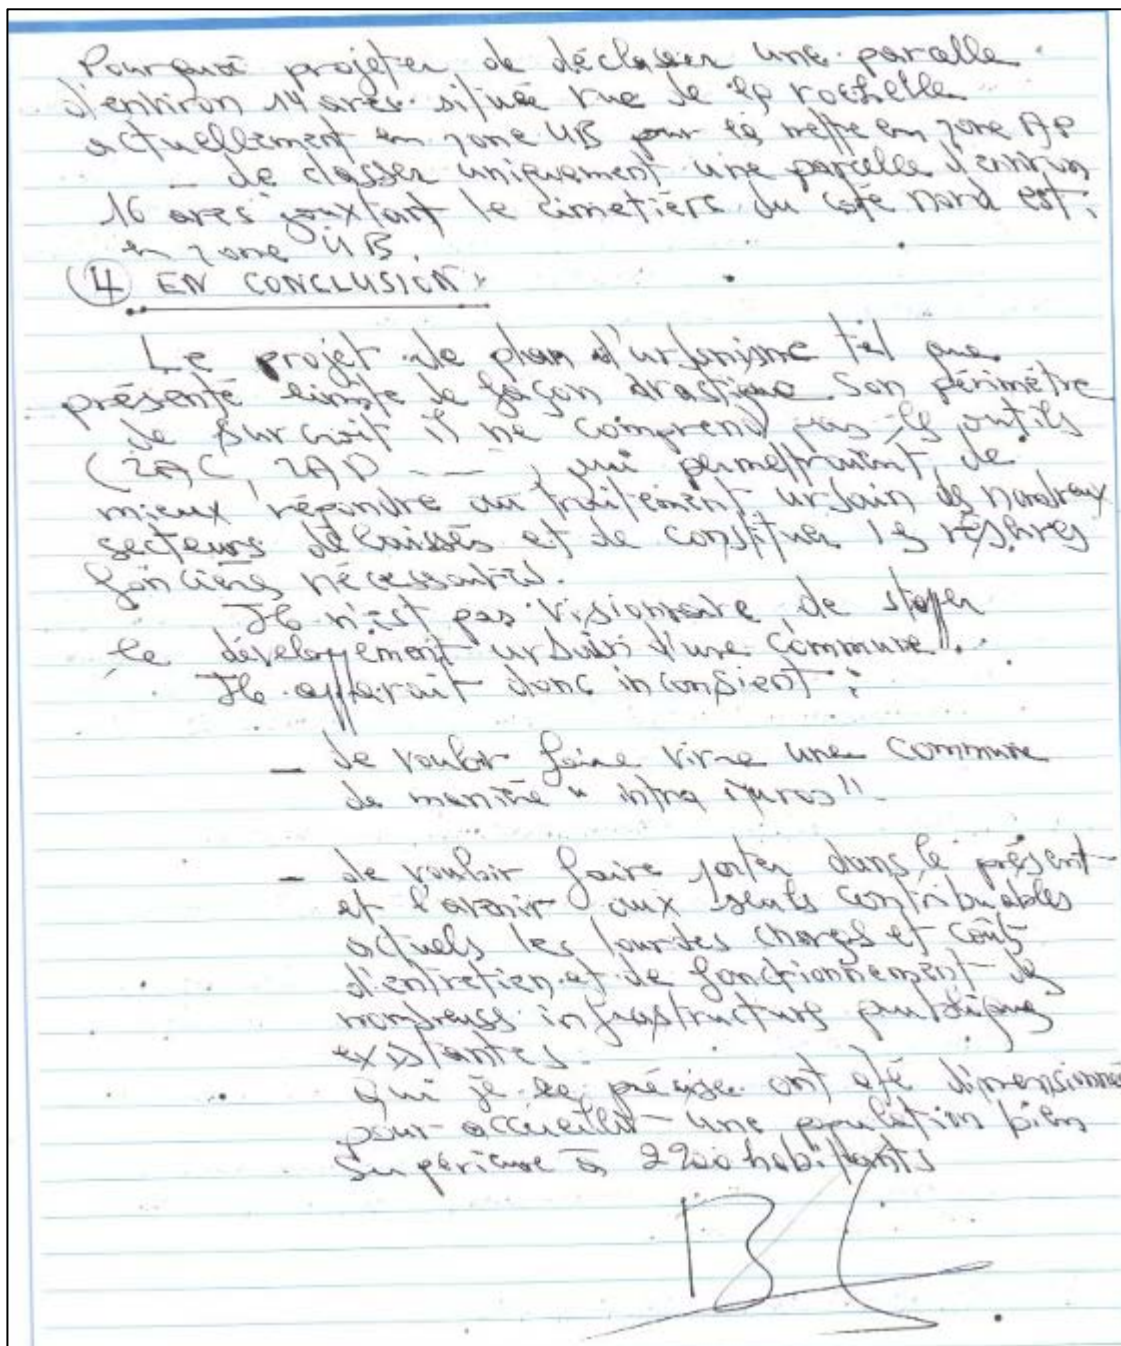 Pourquoi projeter de déclasser une parcelle
d'environ 14 ares située rue de la rochelle
actuellement en zone UB pour la mettre en zone AP
_ de classer uniquement une parcelle d'environ
16 ares jouxtant le cimetière du coté nord est
en zone UB.
4 EN CONCLUSION :
Le projet de plan d'urbanisme tel que
présenté limite de façon drastique son périmètre
de surcroit il ne comprend pas les outils
(ZAC, ZAD __ , qui permettraient de
mieux répondre au traitement urbain de nombreux
secteurs délaissés et de constituer les réserves
foncières nécessaires.
Il n'est pas visionnaire de stopper
le développement urbain d'une commune".
Il apparait donc inconsient :
_ de vouloir faire vivre une commune
de manière "intra muros".
_ de vouloir faire porter dans le présent
et l'avenir aux seuls contribuables
actuels les lourdes charges et coûts
d'entretien et de fonctionnement des
nombreuses infrastructures publiques
existantes.
qui je le précise ont été dimensionné
pour accueillir une population bien
supérieure à 2200 habitants